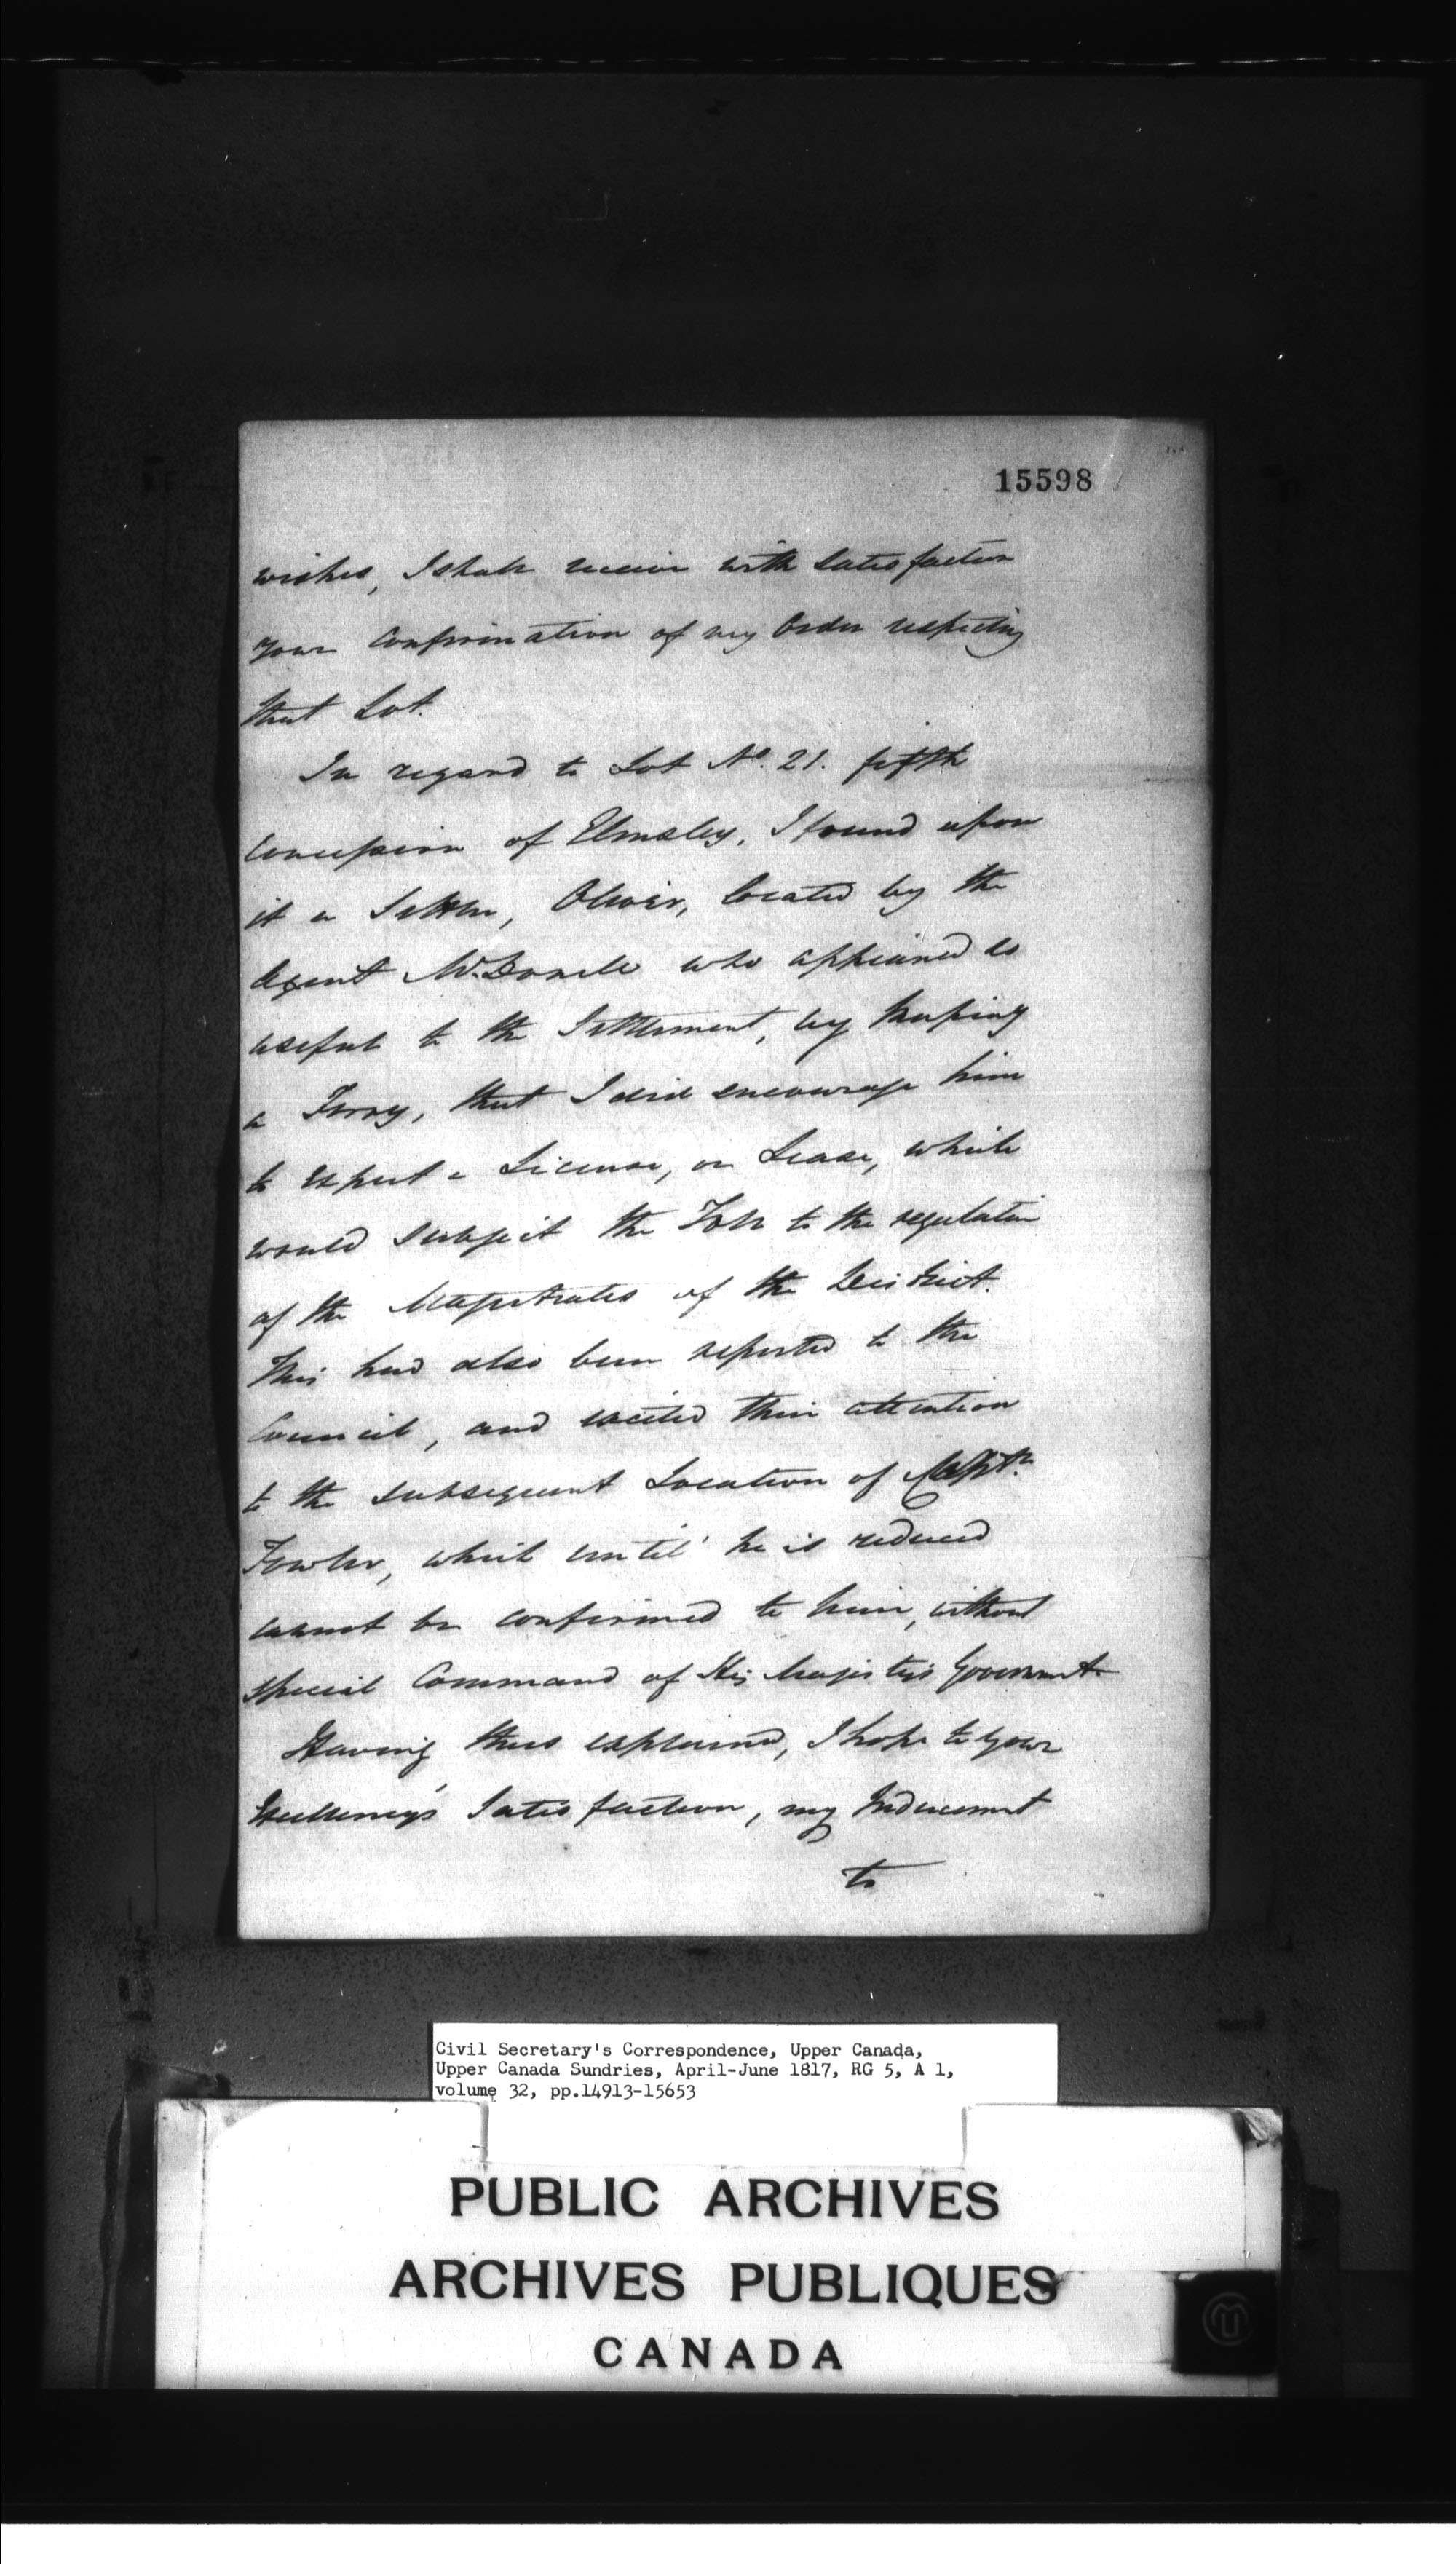 15598
wishes, I shall receive with satisfaction
your Confirmation of my Order respecting
that Lot.
In regard to Lot No. 21. fifth
Concession of Elmsley, I found upon
it a Settler, Oliver, located by the
Agent McDonell who appeared so
useful to the Settlement, by keeping
a Ferry, that I did encourage him
to expect a License, or Lease, which
would subject the Toll to the regulation
of the Magistrates of the District.
This had also been reported to the
Council, and excited their attention
to the subsequent Location of Captn.
Fowler, which until he is reduced
cannot be confirmed to him, without
special Command of His Majesty's Government.
Having thus explained, I hope to your
Excellency's Satisfaction, my Inducement
to
Civil Secretary's Correspondence, Upper Canada,
Upper Canada Sundries, April-June 1817, RG 5, A 1,
volume 32, pp.14913-15653
PUBLIC ARCHIVES
ARCHIVES PUBLIQUES
CANADA